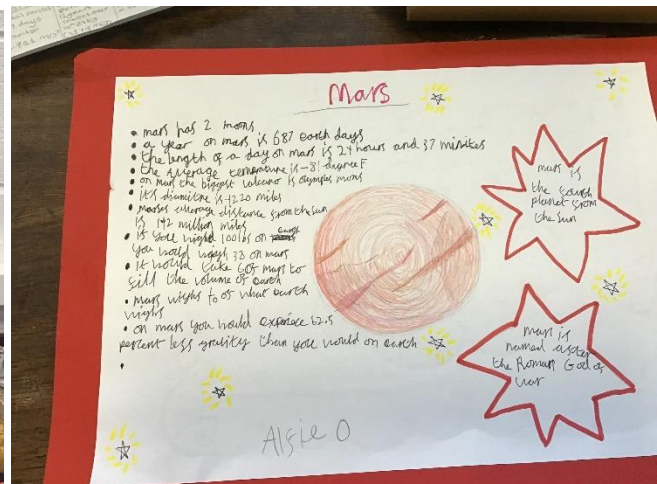 Mars
• mars has 2 moons
• a year on mars is 687 earth days
• the length of a day on mars is 24 hours and 37 minites
• the average temerature is -81 degree F
• on mars the biggest volcano is olympus mons
• it's diamitre is 4220 miles
• marses average distance from the sun
is 142 million miles
• if you wighd 100lbs on earth
you would weigh 38 on mars
• it would take 6 of mars to
fill the volume of earth
• mars wighs of what earth
wighs
• on mars you would experiece 62.5
percent less gravity than you would on earth
•
mars is
the fourth
planet from
the sun
mars is
named after
the Roman God of
war
Alfie O